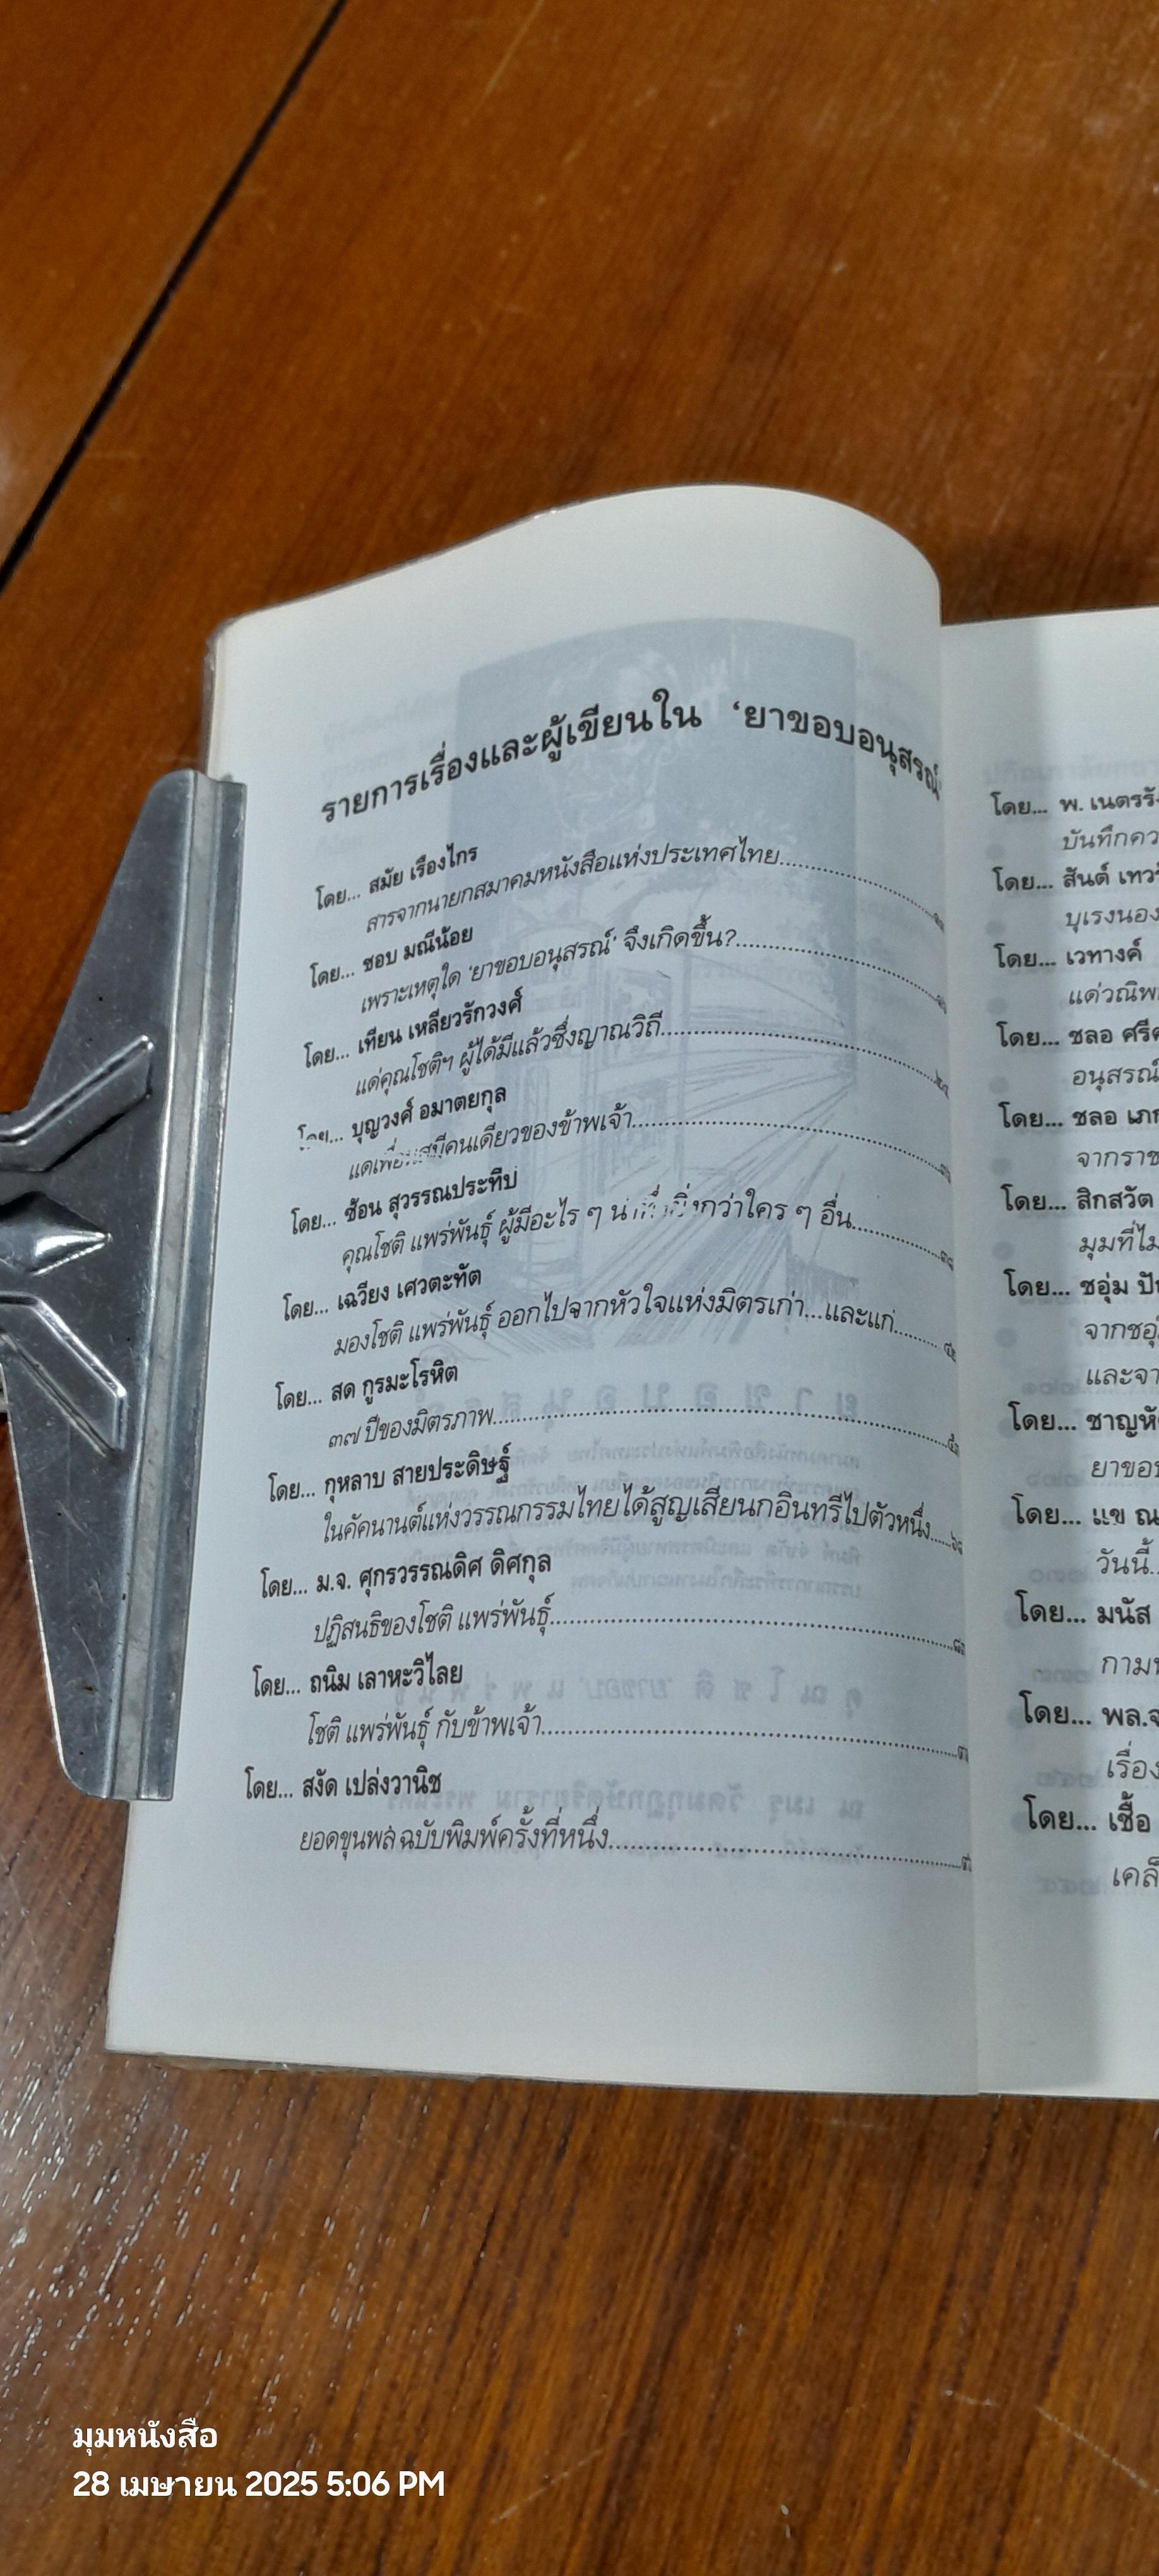 รายการเรื่องและผู้เขียนใน ‘ยาขอบอนุสรณ์’
โดย... สมัย เรืองไกร
สารจากนายกสมาคมหนังสือแห่งประเทศไทย
โดย... ชอบ มณีน้อย
เพราะเหตุใด ‘ยาขอบอนุสรณ์’ จึงเกิดขึ้น?
โดย... เทียน เหลียวรักวงศ์
แด่คุณโชติฯ ผู้ได้มีแล้วซึ่งญาณวิถี
บุญวงศ์ อมาตยกุล
คนเดียวของข้าพเจ้า
โดย... ช้อน สุวรรณประทีป
คุณโชติ แพร่พันธุ์ ผู้มีอะไร ๆ กว่าใคร ๆ อื่น
โดย... เฉวียง เศวตะทัต
มองโชติ แพร่พันธุ์ ออกไปจากหัวใจแห่งมิตรเก่า...และแก่
โดย... สด กูรมะโรหิต
๓๗ ปีของมิตรภาพ
โดย... กุหลาบ สายประดิษฐ์
ในคัคนานต์แห่งวรรณกรรมไทยได้สูญเสียนกอินทรีไปตัวหนึ่ง
โดย... ม.จ. ศุกรวรรณดิศ ดิศกุล
ปฏิสนธิของโชติ แพร่พันธุ์
โดย... ถนิม เลาหะวิไลย
โชติ แพร่พันธุ์ กับข้าพเจ้า
โดย... สงัด เปล่งวานิช
ยอดขุนพล ฉบับพิมพ์ครั้งที่หนึ่ง
โดย... พ. เนตรรัง
บันทึกคว
โดย... สันต์ เทวร
บุเรงนอง
โดย... เวทางค์
แด่วณิพ
โดย... ชลอ ศรี
อนุสรณ์
โดย... ชลอ เภ
จากราช
โดย... สิกสวัต
มุมที่ไม
โดย... ชอุ่ม ปั
จากชอุ่
และจา
โดย... ชาญหั
ยาขอบ
โดย... แข ณ
วันนี้
โดย... มนัส
กาม
โดย... พล.จ
เรื่อง
โดย... เชื้อ
เคล็
มุมหนังสือ
28 เมษายน 2025 5:06 PM